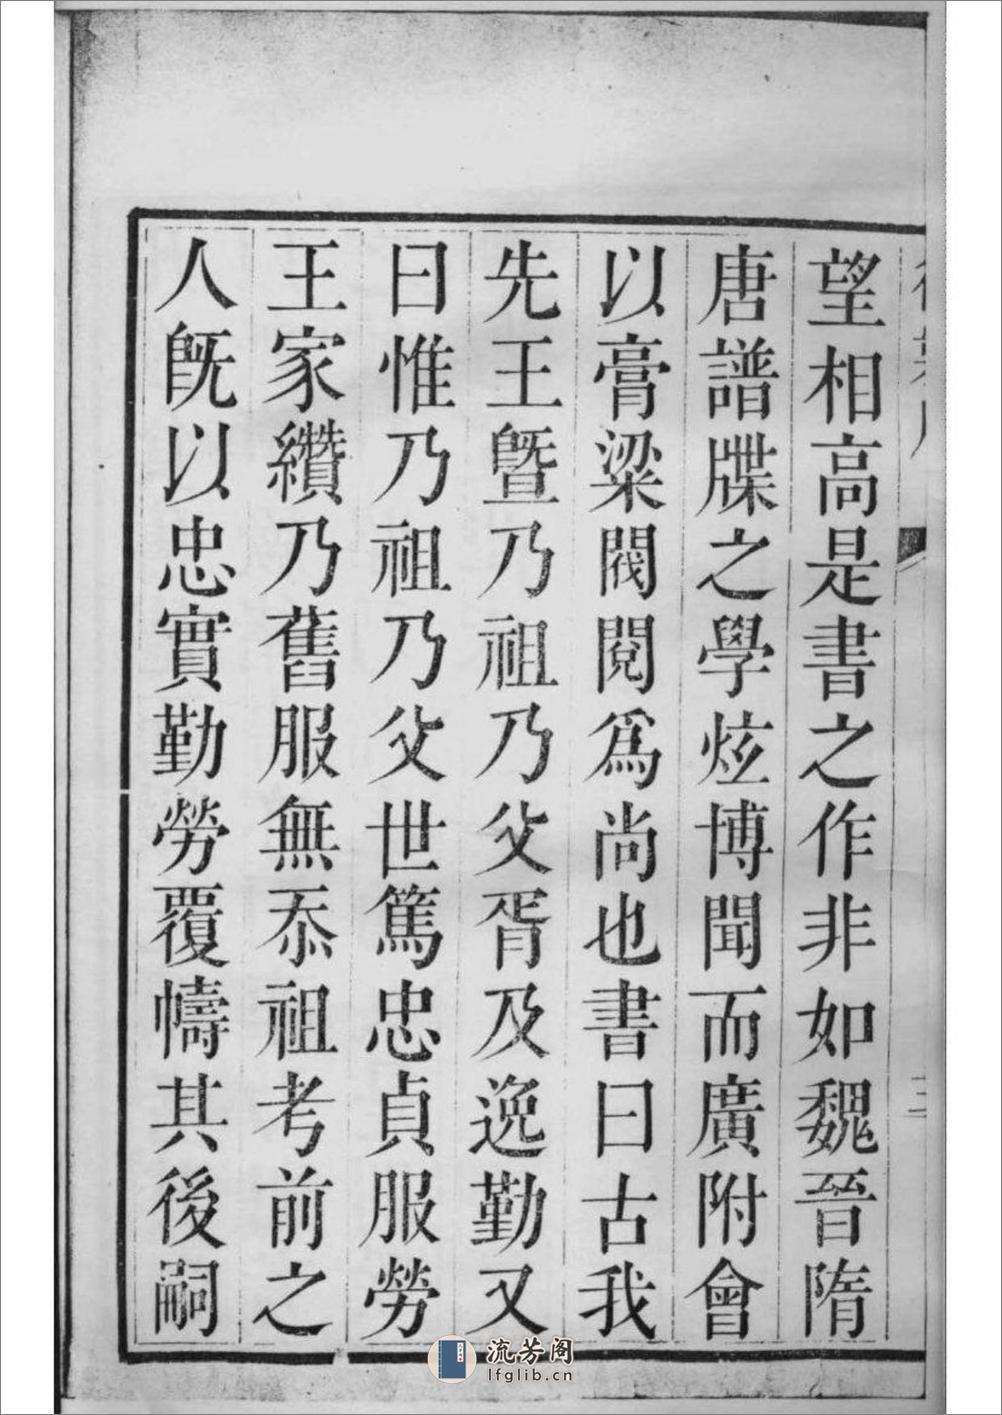 望相高是書之作非如魏晉隋
唐譜牒之學炫博聞而廣附會
以膏粱閥閱為尚也書曰古我
先王暨乃祖乃父胥及逸勤又
曰惟乃祖乃父世篤忠貞服勞
王家纘乃舊服無忝祖考前之
人既以忠實勤勞覆幬其後嗣
流芳阁
lfglib.cn